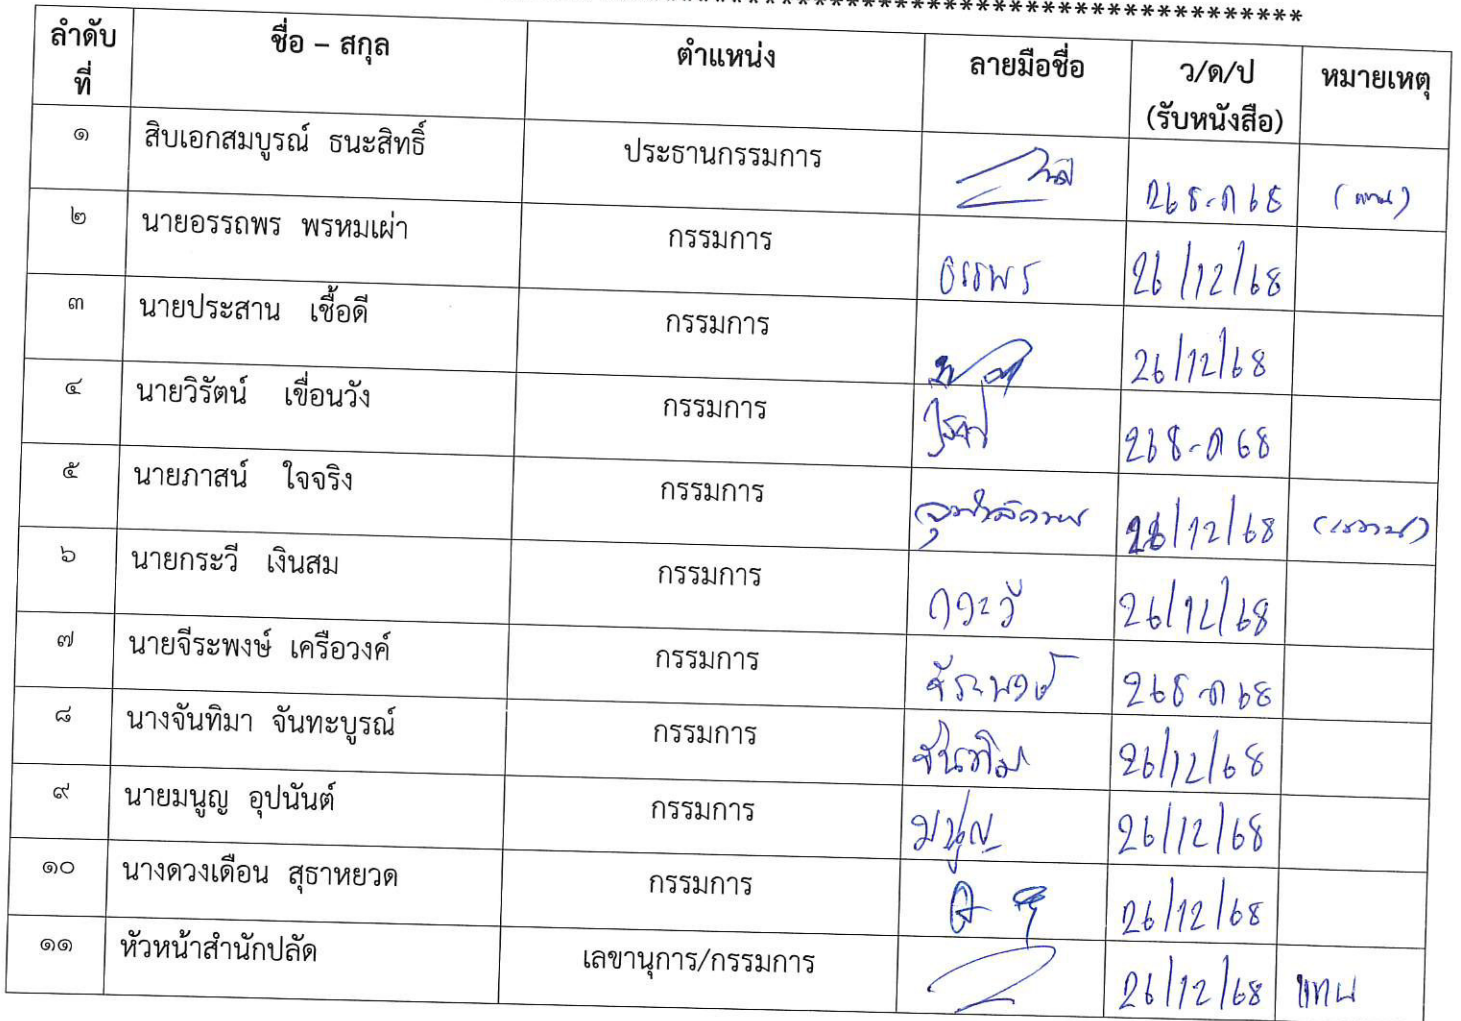 ****************************************************
ลำดับที่ ชื่อ – สกุล ตำแหน่ง ลายมือชื่อ ว/ด/ป (รับหนังสือ) หมายเหตุ
๑ สิบเอกสมบูรณ์ ธนะสิทธิ์ ประธานกรรมการ
๒ นายอรรถพร พรหมเผ่า กรรมการ 26/12/68
๓ นายประสาน เชื้อดี กรรมการ 26/12/68
๔ นายวิรัตน์ เขื่อนวัง กรรมการ
๕ นายภาสน์ ใจจริง กรรมการ 26/12/68
๖ นายกระวี เงินสม กรรมการ กระวี 26/12/68
๗ นายจีระพงษ์ เครือวงค์ กรรมการ จีระพงษ์
๘ นางจันทิมา จันทะบูรณ์ กรรมการ จันทิมา 26/12/68
๙ นายมนูญ อุปนันต์ กรรมการ มนูญ 26/12/68
๑๐ นางดวงเดือน สุธาหยวด กรรมการ 26/12/68
๑๑ หัวหน้าสำนักปลัด เลขานุการ/กรรมการ 26/12/68 แทน